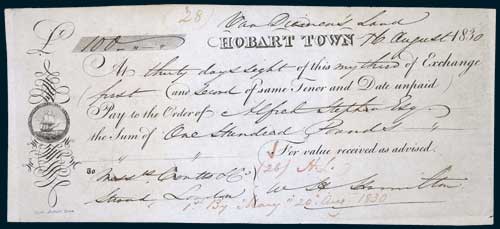 28
Van Diemens Land
£ 100 " - " -
HOBART TOWN 7th August 1830
At thirty days sight of this my third of Exchange
first (and Second of same Tenor and Date unpaid
Pay to the Order of Alfred Stephen Esq
the Sum of One Hundred Pounds
For value received as advised.
To Messrs Coutts & Co
Strand, London
(26)
W Hamilton
1st By "Mary" 20 Aug 1830